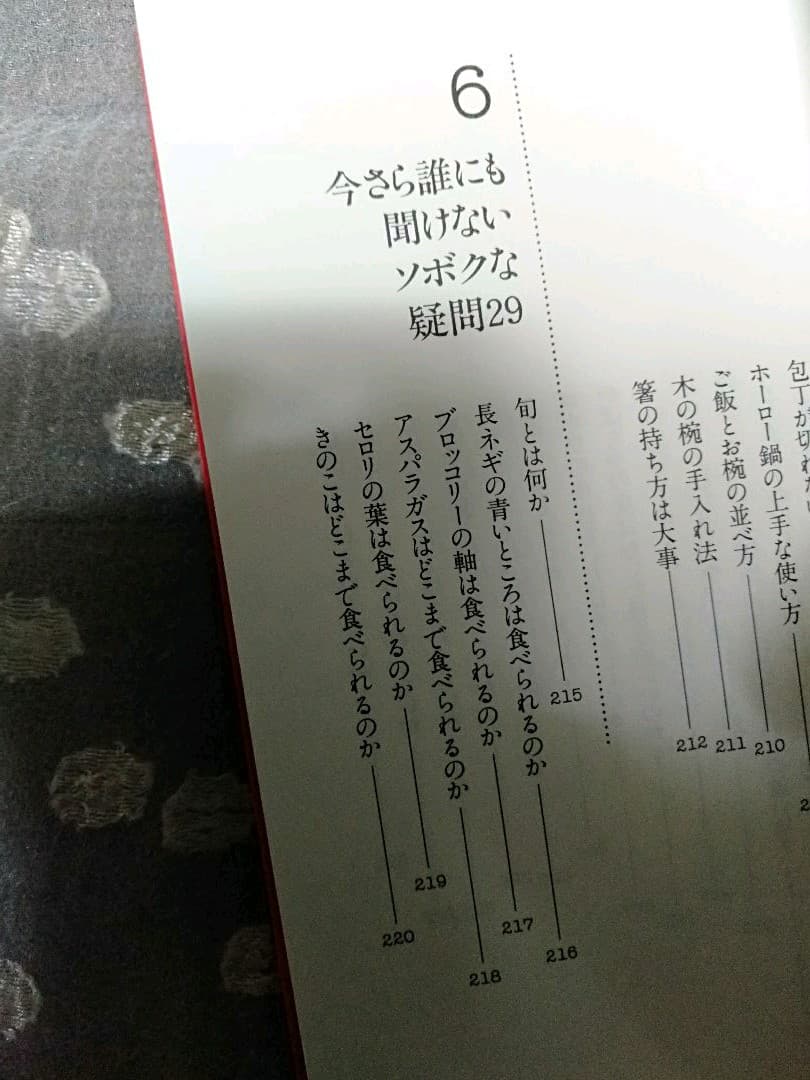 ホーロー鍋の上手な使い方 210
ご飯とお椀の並べ方 211
木の椀の手入れ法 212
箸の持ち方は大事
6
今さら誰にも
聞けない
ソボクな
疑問29
旬とは何か 215
長ネギの青いところは食べられるのか 216
ブロッコリーの軸は食べられるのか 217
アスパラガスはどこまで食べられるのか 218
セロリの葉は食べられるのか 219
きのこはどこまで食べられるのか 220